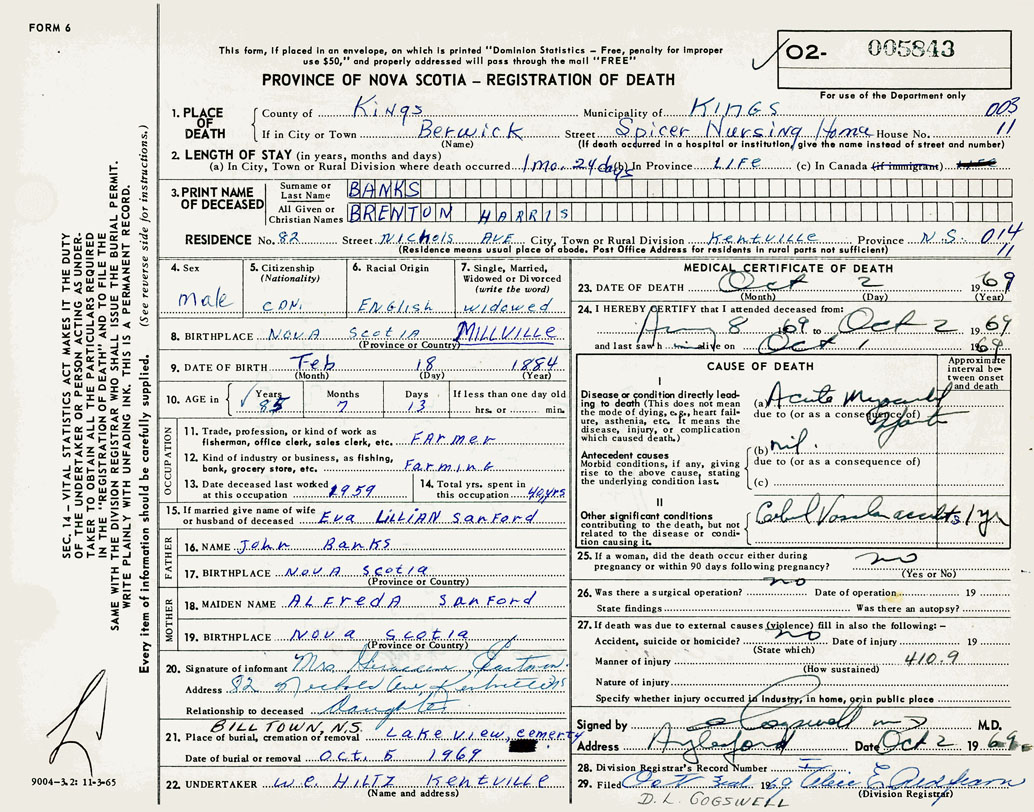 FORM 6
This form, if placed in an envelope, on which is printed "Dominion Statistics – Free, penalty for improper
use $50," and properly addressed will pass through the mail "FREE"
PROVINCE OF NOVA SCOTIA – REGISTRATION OF DEATH
02- 005843
For use of the Department only
1. PLACE OF DEATH
County of Kings Municipality of KINGS 003
If in City or Town Berwick Street Spicer Nursing Home House No. 11
(Name) (If death occurred in a hospital or institution, give the name instead of street and number)
2. LENGTH OF STAY (in years, months and days)
(a) In City, Town or Rural Division where death occurred 1 mo. 24 days (b) In Province LIFE (c) In Canada (if immigrant)
3. PRINT NAME OF DECEASED
Surname or Last Name BANKS
All Given or Christian Names BRENTON HARRIS
RESIDENCE No. 82 Street Nichols AVE City, Town or Rural Division Kentville Province N.S. 014
11
(Residence means usual place of abode. Post Office Address for residents in rural parts not sufficient)
4. Sex male
5. Citizenship (Nationality) CDN.
6. Racial Origin ENGLISH
7. Single, Married, Widowed or Divorced (write the word) widowed
8. BIRTHPLACE NOVA SCOTIA MILLVILLE
(Province or Country)
9. DATE OF BIRTH Feb 18 1884
(Month) (Day) (Year)
10. AGE in Years 85 Months 7 Days 13 If less than one day old
hrs. or min.
OCCUPATION
11. Trade, profession, or kind of work as
fisherman, office clerk, sales clerk, etc. Farmer
12. Kind of industry or business, as fishing,
bank, grocery store, etc. Farming
13. Date deceased last worked at this occupation 1959
14. Total yrs. spent in this occupation 40 yrs
15. If married give name of wife
or husband of deceased Eva LILLIAN Sanford
FATHER
16. NAME John Banks
17. BIRTHPLACE NOVA Scotia
(Province or Country)
MOTHER
18. MAIDEN NAME ALFredA SanFord
19. BIRTHPLACE Nova Scotia
(Province or Country)
20. Signature of informant Mrs.
Address 82
Relationship to deceased daughter
BILLTOWN, N.S.
21. Place of burial, cremation or removal Lake view, cemerty
Date of burial or removal Oct. 5 1969
22. UNDERTAKER W.C. HILTZ Kentville
(Name and address)
MEDICAL CERTIFICATE OF DEATH
23. DATE OF DEATH Oct 2 1969
(Month) (Day) (Year)
24. I HEREBY CERTIFY that I attended deceased from:
Aug 8 1969 to Oct 2 1969
and last saw h im alive on Oct 1 1969
CAUSE OF DEATH
Approximate interval between onset and death
I
Disease or condition directly leading to death (This does not mean the mode of dying, e.g., heart failure, asthenia, etc. It means the disease, injury, or complication which caused death.)
(a) Acute
due to (or as a consequence of)
Antecedent causes
Morbid conditions, if any, giving rise to the above cause, stating the underlying condition last.
(b) nil.
due to (or as a consequence of)
(c)
II
Other significant conditions contributing to the death, but not related to the disease or condition causing it.
1 yr
25. If a woman, did the death occur either during
pregnancy or within 90 days following pregnancy? no
(Yes or No)
26. Was there a surgical operation? no Date of operation 19
State findings Was there an autopsy?
27. If death was due to external causes (violence) fill in also the following: –
Accident, suicide or homicide? no Date of injury 19
(State which)
Manner of injury 410.9
(How sustained)
Nature of injury
Specify whether injury occurred in industry, in home, or in public place
Signed by Cogswell M D M.D.
Address Aylesford Date Oct 2 1969
28. Division Registrar's Record Number
29. Filed Oct 3rd 1969 Alice E.
(Division Registrar)
D. L. COGSWELL
SEC. 14 – VITAL STATISTICS ACT MAKES IT THE DUTY
OF THE UNDERTAKER OR PERSON ACTING AS UNDER-
TAKER TO OBTAIN ALL THE PARTICULARS REQUIRED
IN THE "REGISTRATION OF DEATH" AND TO FILE THE
SAME WITH THE DIVISION REGISTRAR WHO SHALL ISSUE THE BURIAL PERMIT.
WRITE PLAINLY WITH UNFADING INK. THIS IS A PERMANENT RECORD.
Every item of information should be carefully supplied. (See reverse side for instructions.)
9004–3.2: 11-3-65